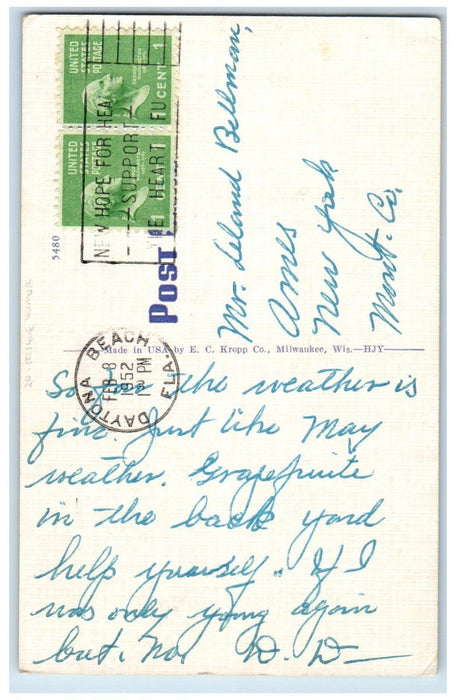 UNITED
STATES
POSTAGE
1 CENT 1
UNITED
STATES
POSTAGE
1
NEW HOPE FOR HEA
SUPPORT
HEART FU
5480
Post
Mr. Leland Bellman,
Ames
New York
Mont. Co.
Made in USA by E. C. Kropp Co., Milwaukee, Wis.—HJY—
DAYTONA BEACH
FLA.
FEB 8
1952
PM
So far the weather is
fine. Just like May
weather. Grapefruite
in the back yard
help yourself. If I
was only young again
but. No. D. D—